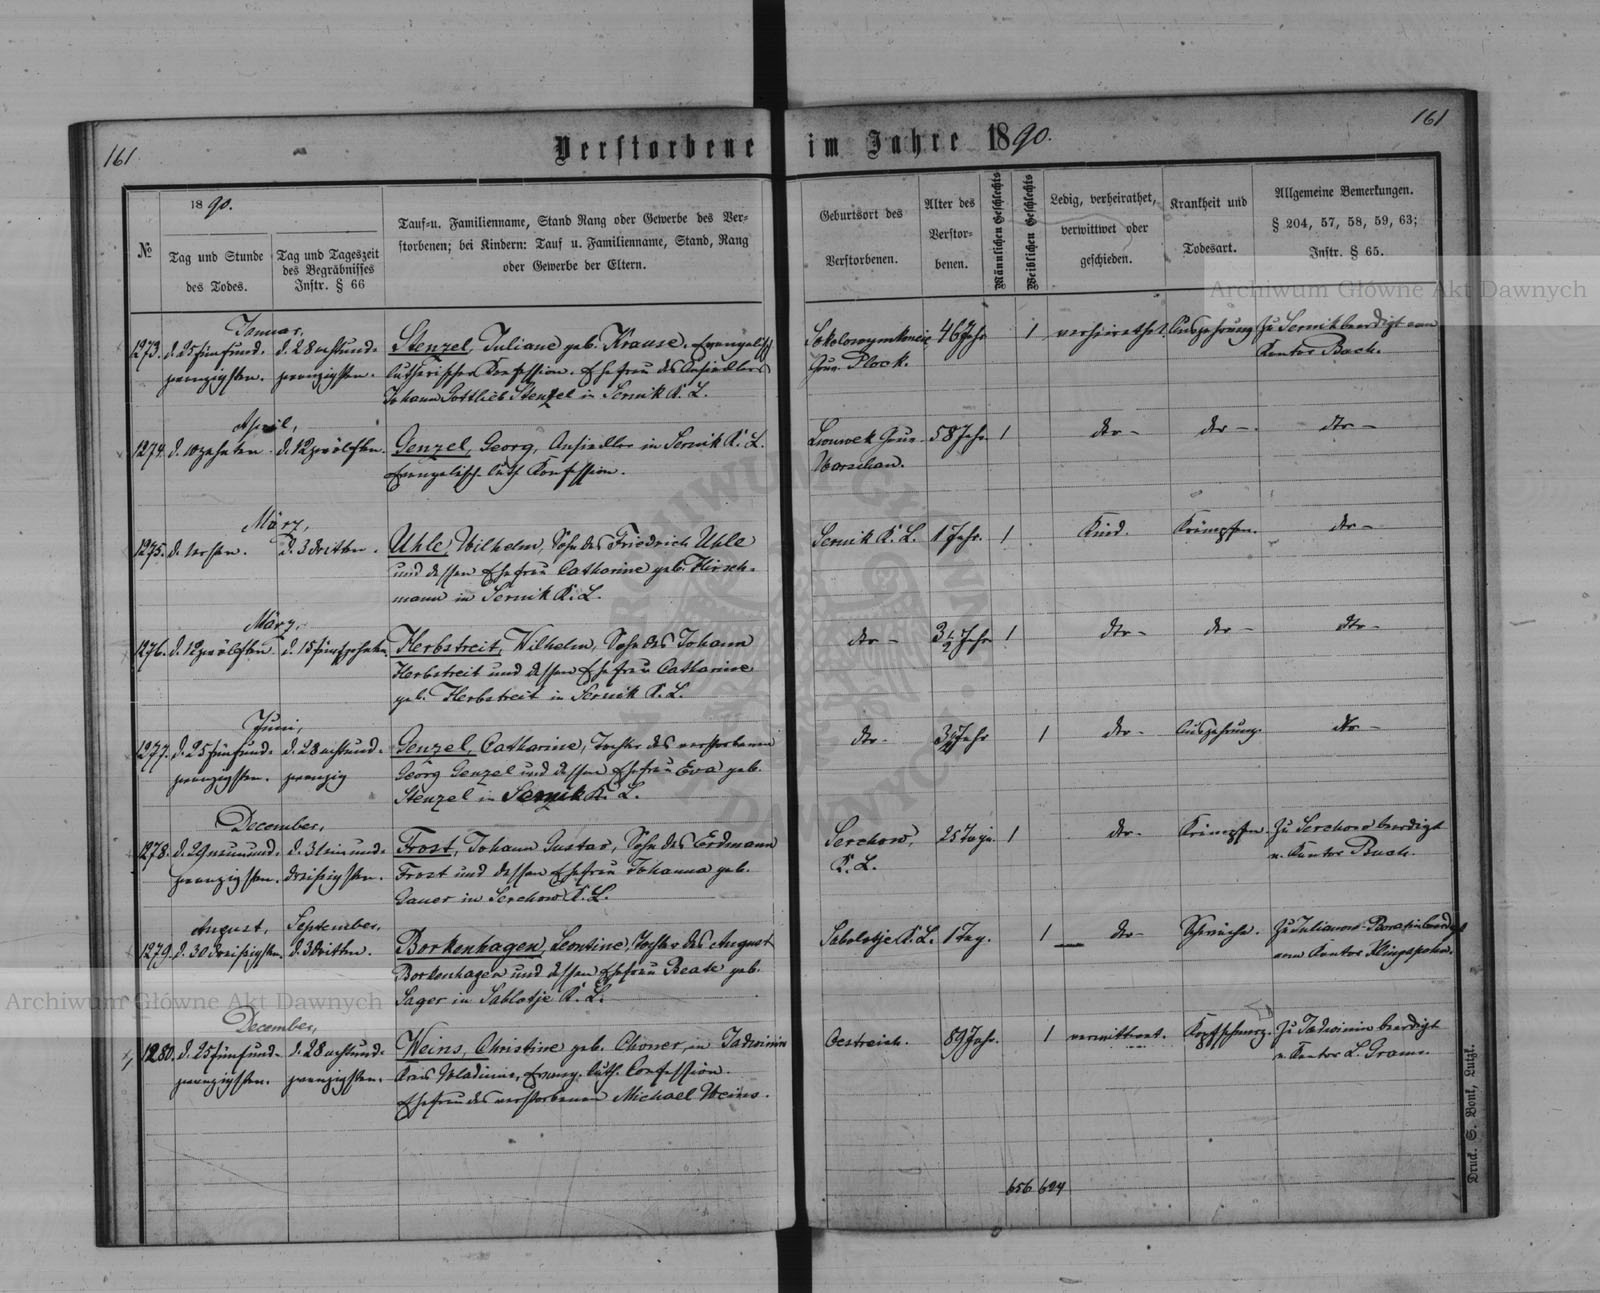 161
161
Verstorbene im Jahre 1890.
№
1890.
Tag und Stunde
des Todes.
Tag und Tageszeit
des Begräbnisses
Instr. § 66
Tauf-u. Familienname, Stand Rang oder Gewerbe des Ver-
storbenen; bei Kindern: Tauf u. Familienname, Stand, Rang
oder Gewerbe der Eltern.
Geburtsort des
Verstorbenen.
Alter des
Verstor-
benen.
Männlichen Geschlechts
Weiblichen Geschlechts
Ledig, verheirathet,
verwittwet oder
geschieden.
Krankheit und
Todesart.
Allgemeine Bemerkungen.
§ 204, 57, 58, 59, 63;
Instr. § 65.
Januar,
1273. d. 25 fünfund- d. 28 achtund- Stenzel, Juliane geb. Krause, Evangelisch 46 Jahr 1 verheirathet. Auszehrung Zu Sernik beerdigt vom
zwanzigsten. zwanzigsten. lutherischer Konfession. Ehefrau des Ansiedlers Gouv. Plock. Kantor Bach.
Johann Gottlieb Stenzel in Sernik K. L.
April,
1274. d. 10 zehnten. d. 12 zwölften. Genzel, Georg, Ansiedler in Sernik K. L. Gouv. 58 Jahr 1 dto- dto- dto-
Evangelisch luth. Konfession. Warschau.
März,
1275. d. 1 ersten. d. 3 dritten. Uhle, Wilhelm, Sohn des Friedrich Uhle Sernik K. L. 1 Jahr. 1 Kind. Krämpfen. dto-
und dessen Ehefrau Catharine geb. Hirsch-
mann in Sernik K. L.
März,
1276. d. 12 zwölften d. 15 fünfzehnten. Herbstreit, Wilhelm, Sohn des Johann dto- 3½ Jahr 1 dto- dto- dto-
Herbstreit und dessen Ehefrau Catharine
geb. Herbstreit in Sernik K. L.
Juni,
1277. d. 25 fünfund- d. 28 achtund- Genzel, Catharine, Tochter des verstorbenen dto- Jahr 1 dto- Auszehrung. dto-
zwanzigsten. zwanzig Georg Genzel und dessen Ehefrau Eva geb.
Stenzel in Sernik K. L.
December,
1278. d. 29 neunund- d. 31 einund- Frost, Johann Gustav, Sohn des Erdmann Serchow, 25 Tage. 1 dto- Krämpfen. Zu Serchow beerdigt
zwanzigsten. dreißigsten. Frost und dessen Ehefrau Johanna geb. K. L. v. Kantor Bach.
Gauer in Serchow K. L.
August, September,
1279. d. 30 dreißigsten. d. 3 dritten. Borkenhagen, Leontine, Tochter des August Sabolotje K. L. 1 Tag. 1 dto- Schwäche. Zu Julianow beerdigt
Borkenhagen und dessen Ehefrau Beate geb. vom Kantor
Sager in Sablotje K. L.
December,
1280. d. 25 fünfund- d. 28 achtund- Weins, Christine geb. Choner, in Jadwinin Oestreich. 89 Jahr. 1 verwittwet. Kopfschmerz. Zu Jadwinin beerdigt
zwanzigsten. zwanzigsten. Kreis Wladimir, Evang. luth. Confession. v. Kantor L. Gramm.
Ehefrau des verstorbenen Michael Weins.
656 624
Druck. S. Bonk, Lutzk.
Archiwum Główne Akt Dawnych
Archiwum Główne Akt Dawnych
ARCHIWUM GŁÓWNE AKT DAWNYCH